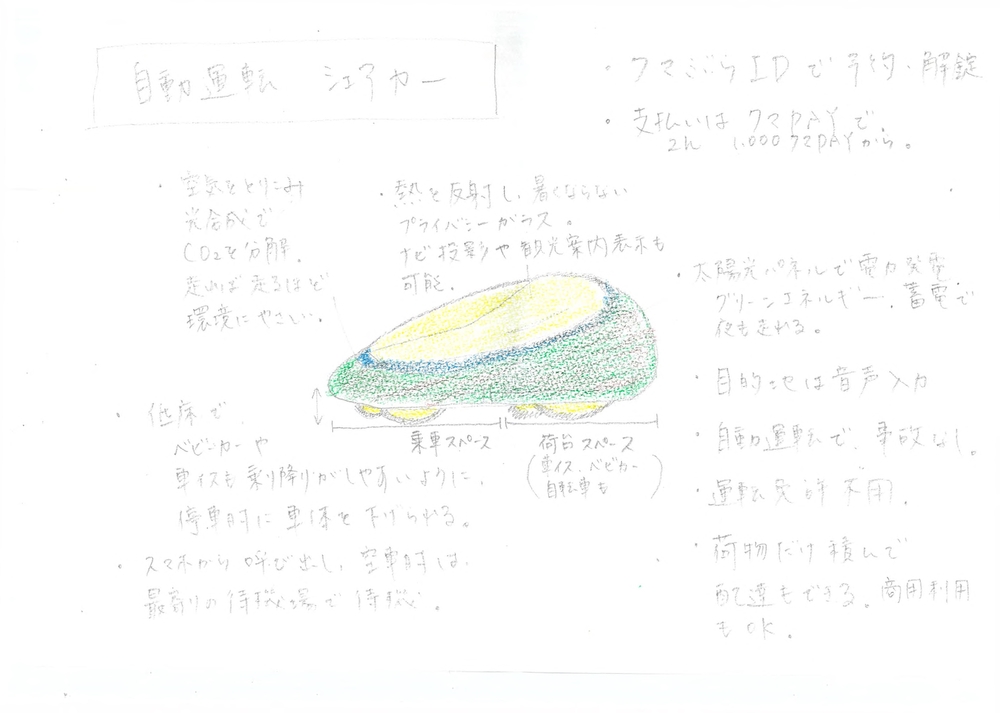 自動運転 シェアカー
・クマぶらIDで予約・解錠
・支払いはクマPAYで。
2h 1,000クマPAYから。
・空気をとりこみ
光合成で
CO2を分解。
走れば走るほど
環境にやさしい。
・熱を反射し、暑くならない
プライバシーガラス。
ナビ投影や観光案内表示も
可能。
・太陽光パネルで電力発電
グリーンエネルギー、蓄電で
夜も走れる。
・目的地は音声入力
・自動運転で、事故なし。
・運転免許不用。
・荷物だけ積んで
配達もできる。商用利用
もOK。
乗車スペース
荷台スペース
(車イス、ベビカー
自転車も)
・低床で
ベビーカーや
車イスも乗り降りがしやすいように、
停車時に車体を下げられる。
・スマホから呼び出し、空車時は、
最寄りの待機場で待機。